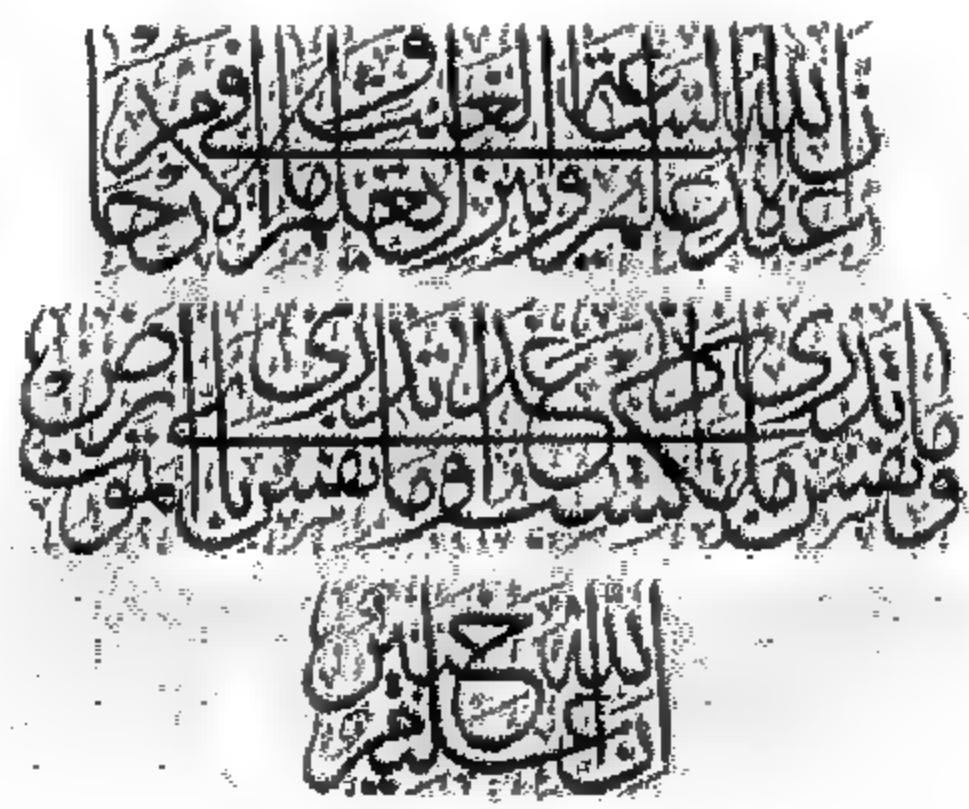 إن الله عنده علم الساعة وينزل الغيث ويعلم ما في الأرحام
وما تدري نفس ماذا تكسب غدا وما تدري نفس بأي أرض تموت
إن الله عليم خبير